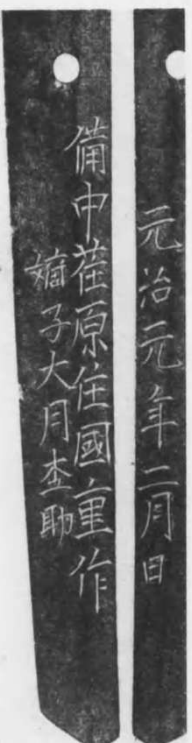 元治元年二月日
備中荏原住國重作
嫡子大月杢助